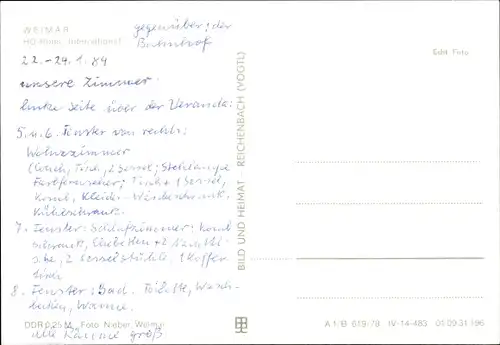 WEIMAR
HO-Hotel "International"
gegenüber: der
Bahnhof
22.-24.1.84
unsere Zimmer:
linke Seite über der Veranda:
5. u. 6. Fenster von rechts:
Wohnzimmer
(Couch, Tisch, 2 Sessel; Stehlampe
Farbfernseher; Tisch + 1 Sessel,
Komb. Kleider-Wäscheschrank,
Kühlschrank.
7. Fenster: Schlafzimmer: Komb
schrank, Ehebetten + 2 Nachtti-
sche, 2 Sesselstühle, 1 Koffer
tisch
8. Fenster: Bad. Toilette, Wasch-
becken, Wanne.
alle Räume groß
DDR 0,25 M Foto Nieber Weimar
BILD UND HEIMAT REICHENBACH (VOGTL)
Echt Foto
A 1/B 619/78 IV-14-483 01 09 31 196